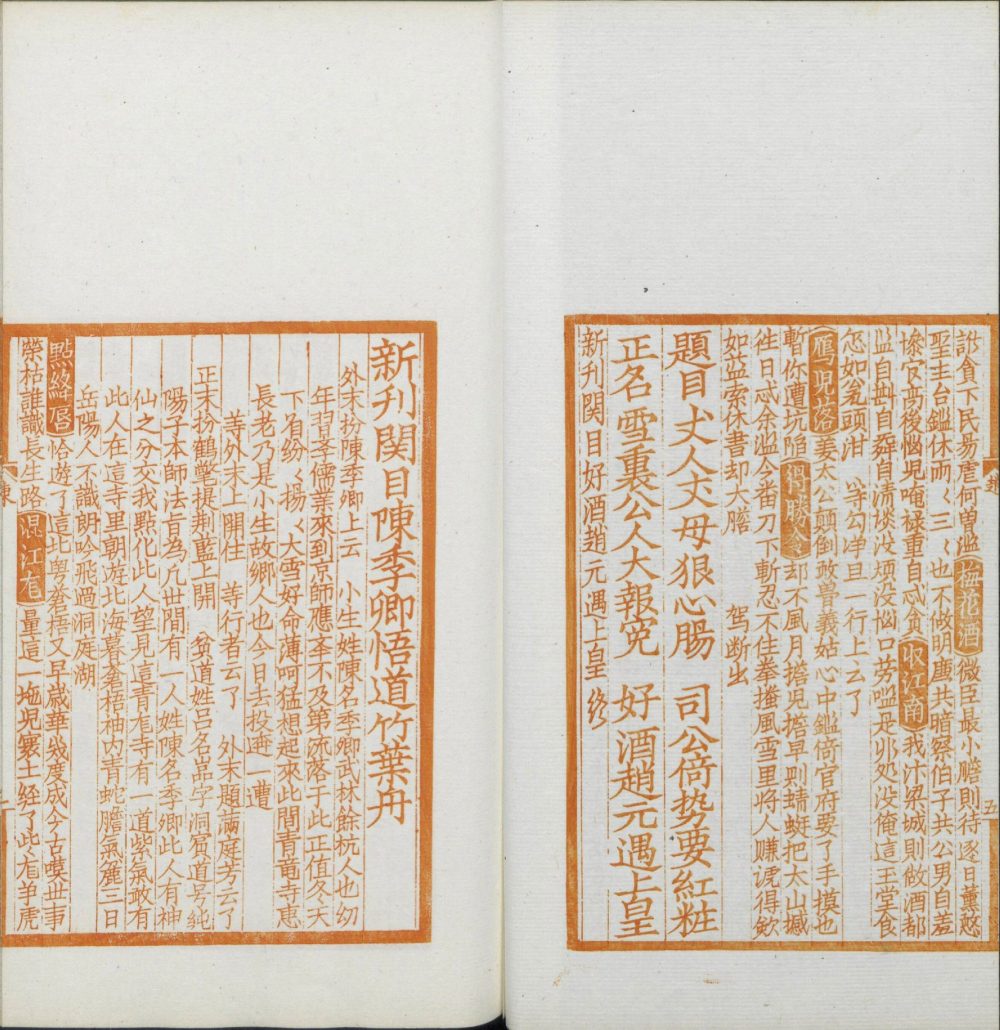 詐貪下民易虐何曽濫梅花酒微臣長小膽則待逐日
聖主台鑑休而〻三〻也不做明共暗察伯子共公男自羞
後惱児唵禄重自忍貪収江南我汴梁城則做酒都
监自斟自自清談没煩没惱口是非处没俺這玉堂食
怎如瓮頭泔　等勾净旦一行上云了
鴈児落姜太公顛倒敢魯義姑心中鑑倚官府要了手摸也
暫你遭坑陷得勝令却不風月擔児擔早則蜻蜓把太山撼
往日忒余濫今番刀下斬忍不住拳攙風雪里将人赚諕得欽
如益索休書却大膽　驾断出
題目丈人丈母狠心腸　司公倚势要紅粧
正名雪裏公人大報寃　好酒趙元遇上皇
新刋関目好酒趙元遇上皇　终
五
新刋関目陳季卿悟道竹葉舟
外末扮陳季卿上云　小生姓陳名季卿武林餘杭人也幼
年習李儒業來到京師應本不及第流落于此正值冬天
下着紛〻揚〻大雪好命薄呵猛想起來此間青竜寺惠
長老乃是小生故鄉人也今日去投逩一遭
等外末上閞住　等行者云了　外末題滿庭芳云了
正末扮鶴氅提荆藍上開　貧道姓吕名岩字洞賓道号純
陽子本師法旨為凢世間有一人姓陳名季卿此人有神
仙之分交我點化此人望見這青竜寺有一道紫氣敢有
此人在這寺里朝遊北海暮蒼梧袖内青蛇膽氣麄三日
岳陽人不識朗吟飛過洞庭湖
點絳唇恰遊了這北粤蒼梧又早歳華幾度成今古嘆世事
榮枯誰識長生路混江竜量這一塊児寰土經了些竜争虎